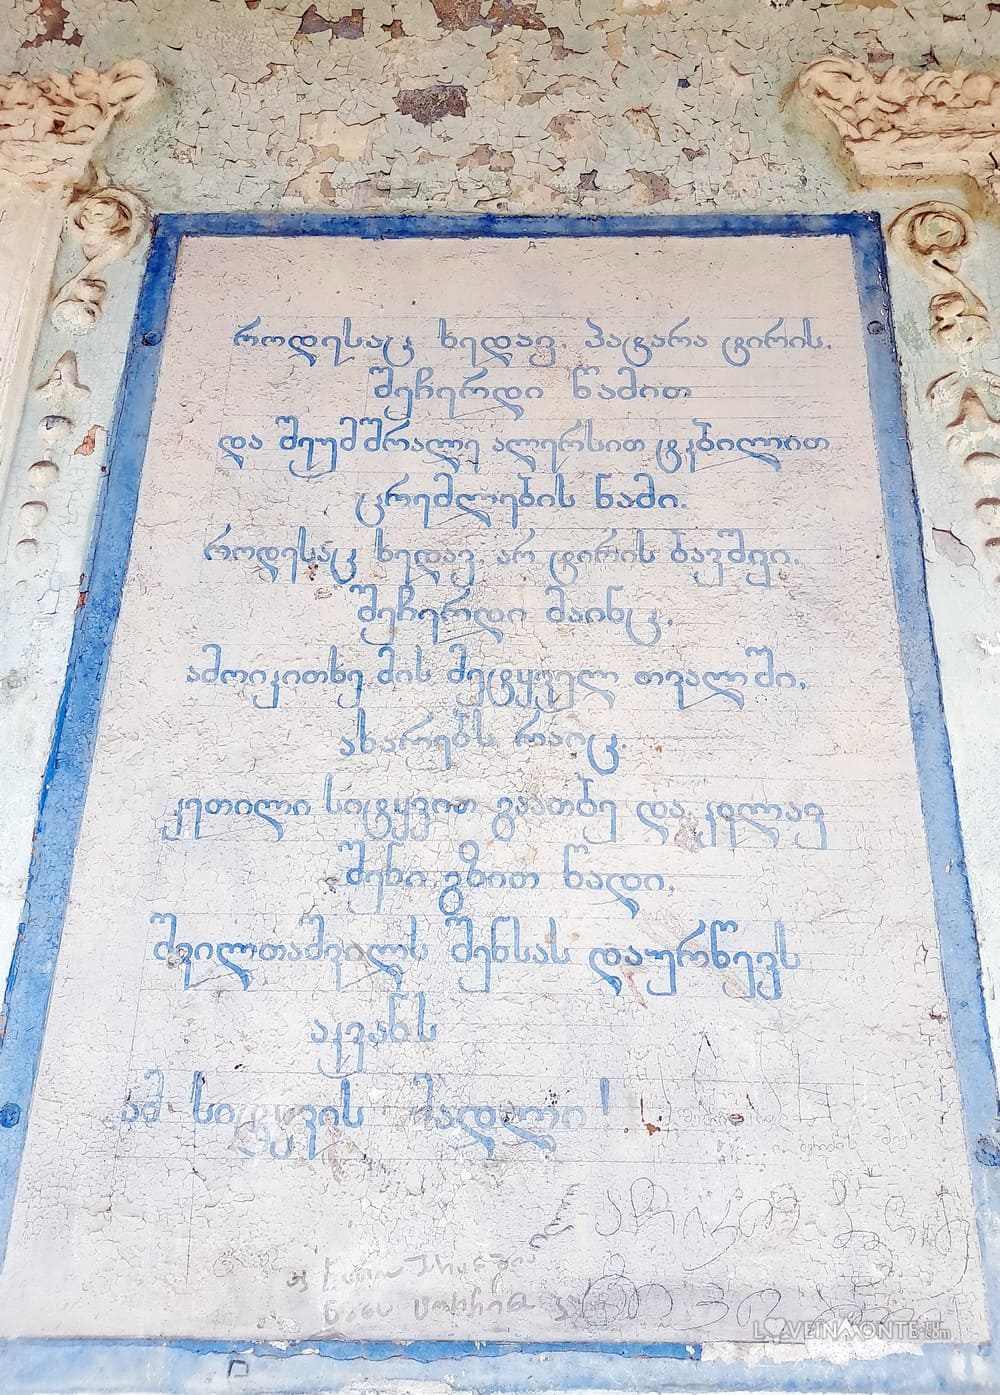 როდესაც ხედავ, პატარა ტირის,
შეჩერდი წამით
და შეუმშრალე ალერსით ტკბილით
ცრემლების ნამი.
როდესაც ხედავ, არ ტირის ბავშვი,
შეჩერდი მაინც,
ამოიკითხე მის მეტყველ თვალში,
ახარებს რაიც.
კეთილი სიტყვით გაათბე და კვლავ
შენი გზით წადი,
შვილთაშვილს შენსას დაურწევს
აკვანს
ამ სიტყვის მადლი!
LOVEINMONTE.com